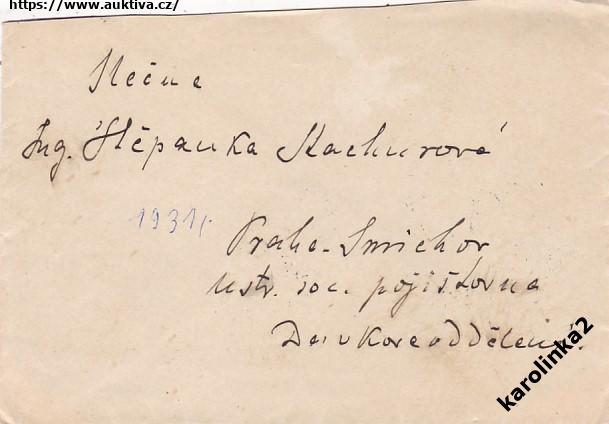 https://www.auktiva.cz/
Slečna
Ing. Štěpanka Machurová
1931
Praha-Smichov
Ustr. soc. pojišťovna
oddělení.
karolinka2